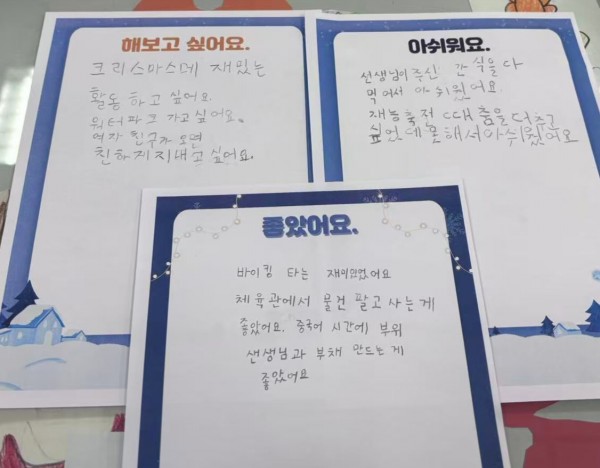 해보고 싶어요.
크리스마스데 재밌는
활동 하고 싶어요.
워터파크 가고싶어요.
여자 친구가 오면
친하게 지내고 싶어요.
아쉬워요.
선생님이 주신 간식을 다
먹어서 아쉬웠어요.
재능축전 때 춤을 더 추고
싶었는데 못해서 아쉬웠어요
좋았어요.
바이킹 타는 재미있었어요
체육관에서 물건 팔고 사는게
좋았어요. 중국어 시간에 부위
선생님과 부채 만드는 게
좋았어요